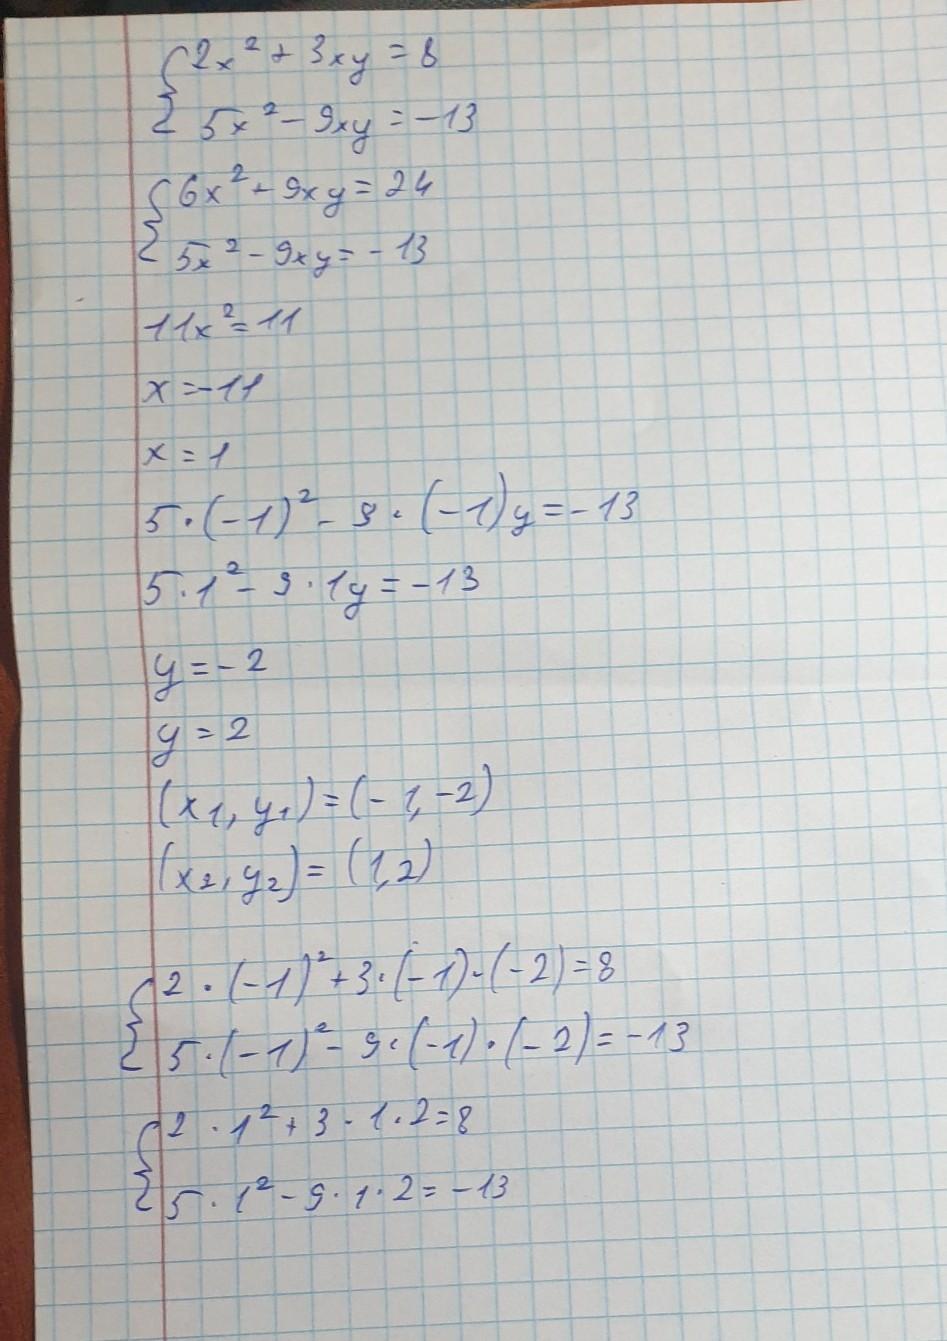 { 2x² + 3xy = 8
5x² - 9xy = -13
{ 6x² + 9xy = 24
5x² - 9xy = -13
11x² = 11
x = -11
x = 1
5 · (-1)² - 9 · (-1)y = -13
5 · 1² - 9 · 1y = -13
y = -2
y = 2
(x₁, y₁) = (-1, -2)
(x₂, y₂) = (1, 2)
{ 2 · (-1)² + 3 · (-1) · (-2) = 8
5 · (-1)² - 9 · (-1) · (-2) = -13
{ 2 · 1² + 3 · 1 · 2 = 8
5 · 1² - 9 · 1 · 2 = -13